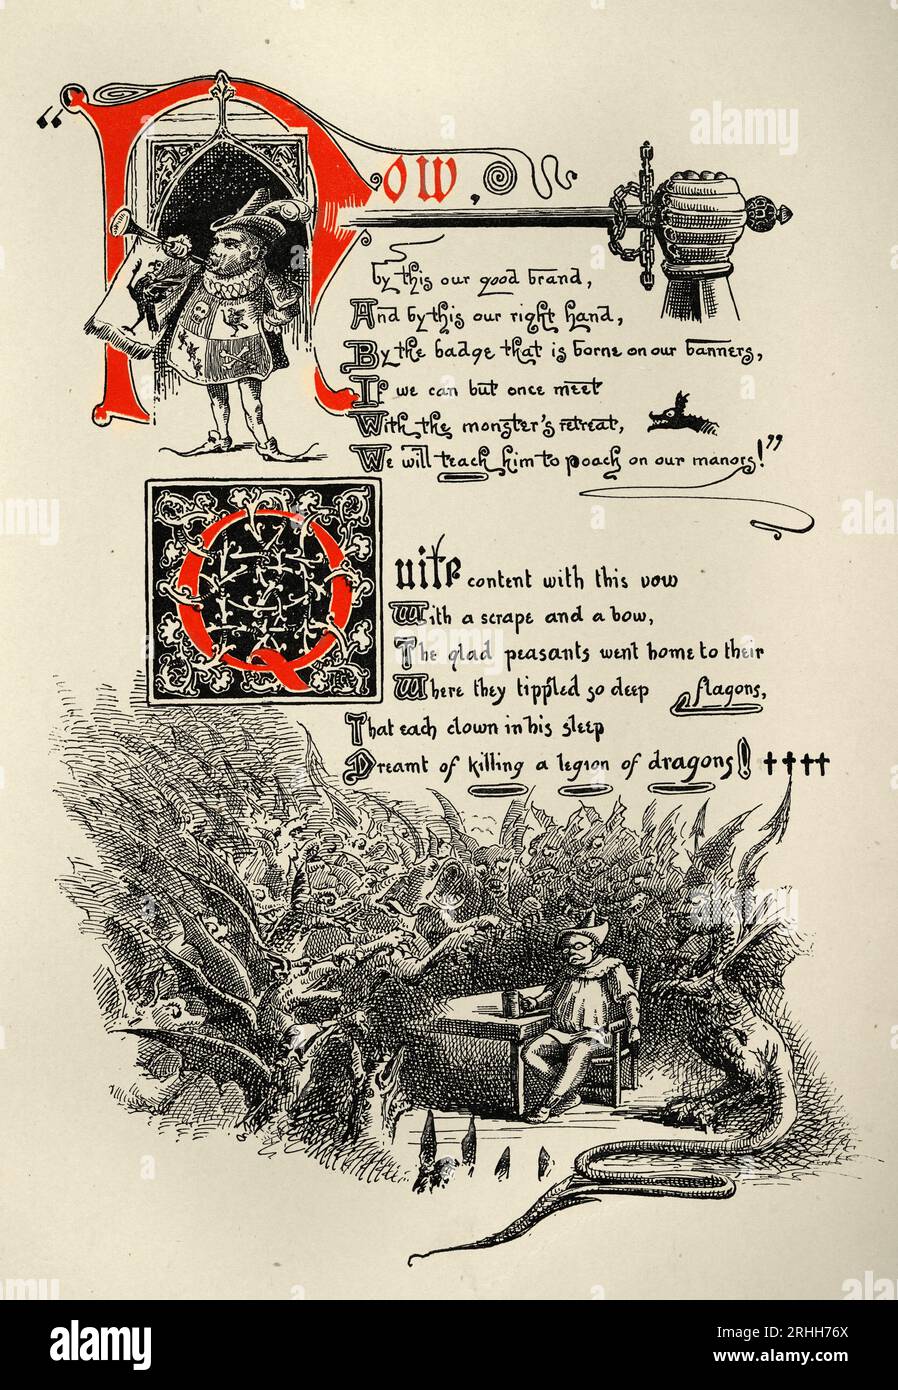 “Now,
by this our good brand,
And by this our right hand,
By the badge that is borne on our banners,
If we can but once meet
With the monster's retreat,
We will teach him to poach on our manors!”
Quite content with this vow
With a scrape and a bow,
The glad peasants went home to their
Where they tippled so deep flagons,
That each clown in his sleep
Dreamt of killing a legion of dragons! ††††
alamy
alamy
alamy
a
a
a
alamy
Image ID: 2RHH76X
www.alamy.com